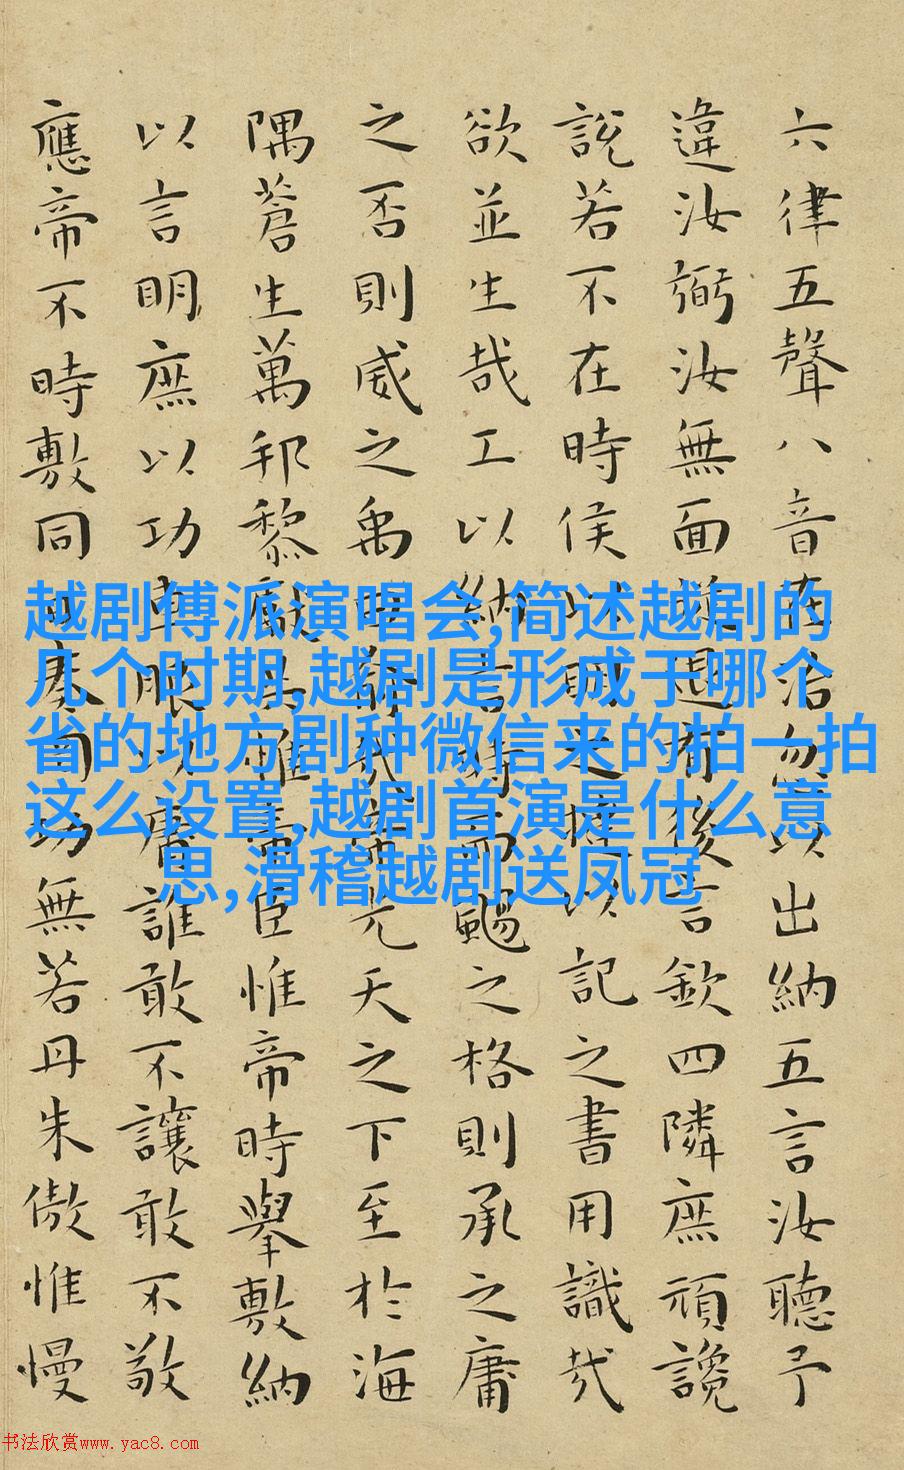 六律五聲八音在治忽以出納五言汝聽予
違汝弼汝無面從退有後言欽四隣庶頑讒
說若不在時侯以明之撻以記之書用識哉
欲並生哉工以納言時而颺之格則承之庸
之否則威之禹曰俞哉帝光天之下至於海
隅蒼生萬邦黎獻共惟帝臣惟帝時舉敷納
以言明庶以功車服以庸誰敢不讓敢不敬
應帝不時敷同日奏罔功無若丹朱傲惟慢
越剧傅派演唱会,简述越剧的
几个时期,越剧是形成于哪个
省的地方剧种微信来的拍一拍
这么设置,越剧首演是什么意
思,滑稽越剧送凤冠
书法欣赏www.yac8.com